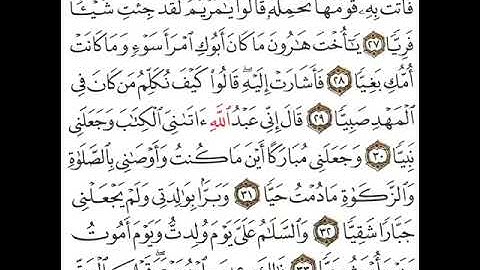 فَأَتَتْ بِهِۦ قَوْمَهَا تَحْمِلُهُۥ قَالُوا۟ يَٰمَرْيَمُ لَقَدْ جِئْتِ شَيْـًٔا
فَرِيًّا ٢٧ يَٰٓأُخْتَ هَٰرُونَ مَا كَانَ أَبُوكِ ٱمْرَأَ سَوْءٍ وَمَا كَانَتْ
أُمُّكِ بَغِيًّا ٢٨ فَأَشَارَتْ إِلَيْهِ قَالُوا۟ كَيْفَ نُكَلِّمُ مَن كَانَ فِى
ٱلْمَهْدِ صَبِيًّا ٢٩ قَالَ إِنِّى عَبْدُ ٱللَّهِ ءَاتَىٰنِىَ ٱلْكِتَٰبَ وَجَعَلَنِى
نَبِيًّا ٣٠ وَجَعَلَنِى مُبَارَكًا أَيْنَ مَا كُنتُ وَأَوْصَٰنِى بِٱلصَّلَوٰةِ
وَٱلزَّكَوٰةِ مَا دُمْتُ حَيًّا ٣١ وَبَرًّۢا بِوَٰلِدَتِى وَلَمْ يَجْعَلْنِى
جَبَّارًا شَقِيًّا ٣٢ وَٱلسَّلَٰمُ عَلَىَّ يَوْمَ وُلِدتُّ وَيَوْمَ أَمُوتُ